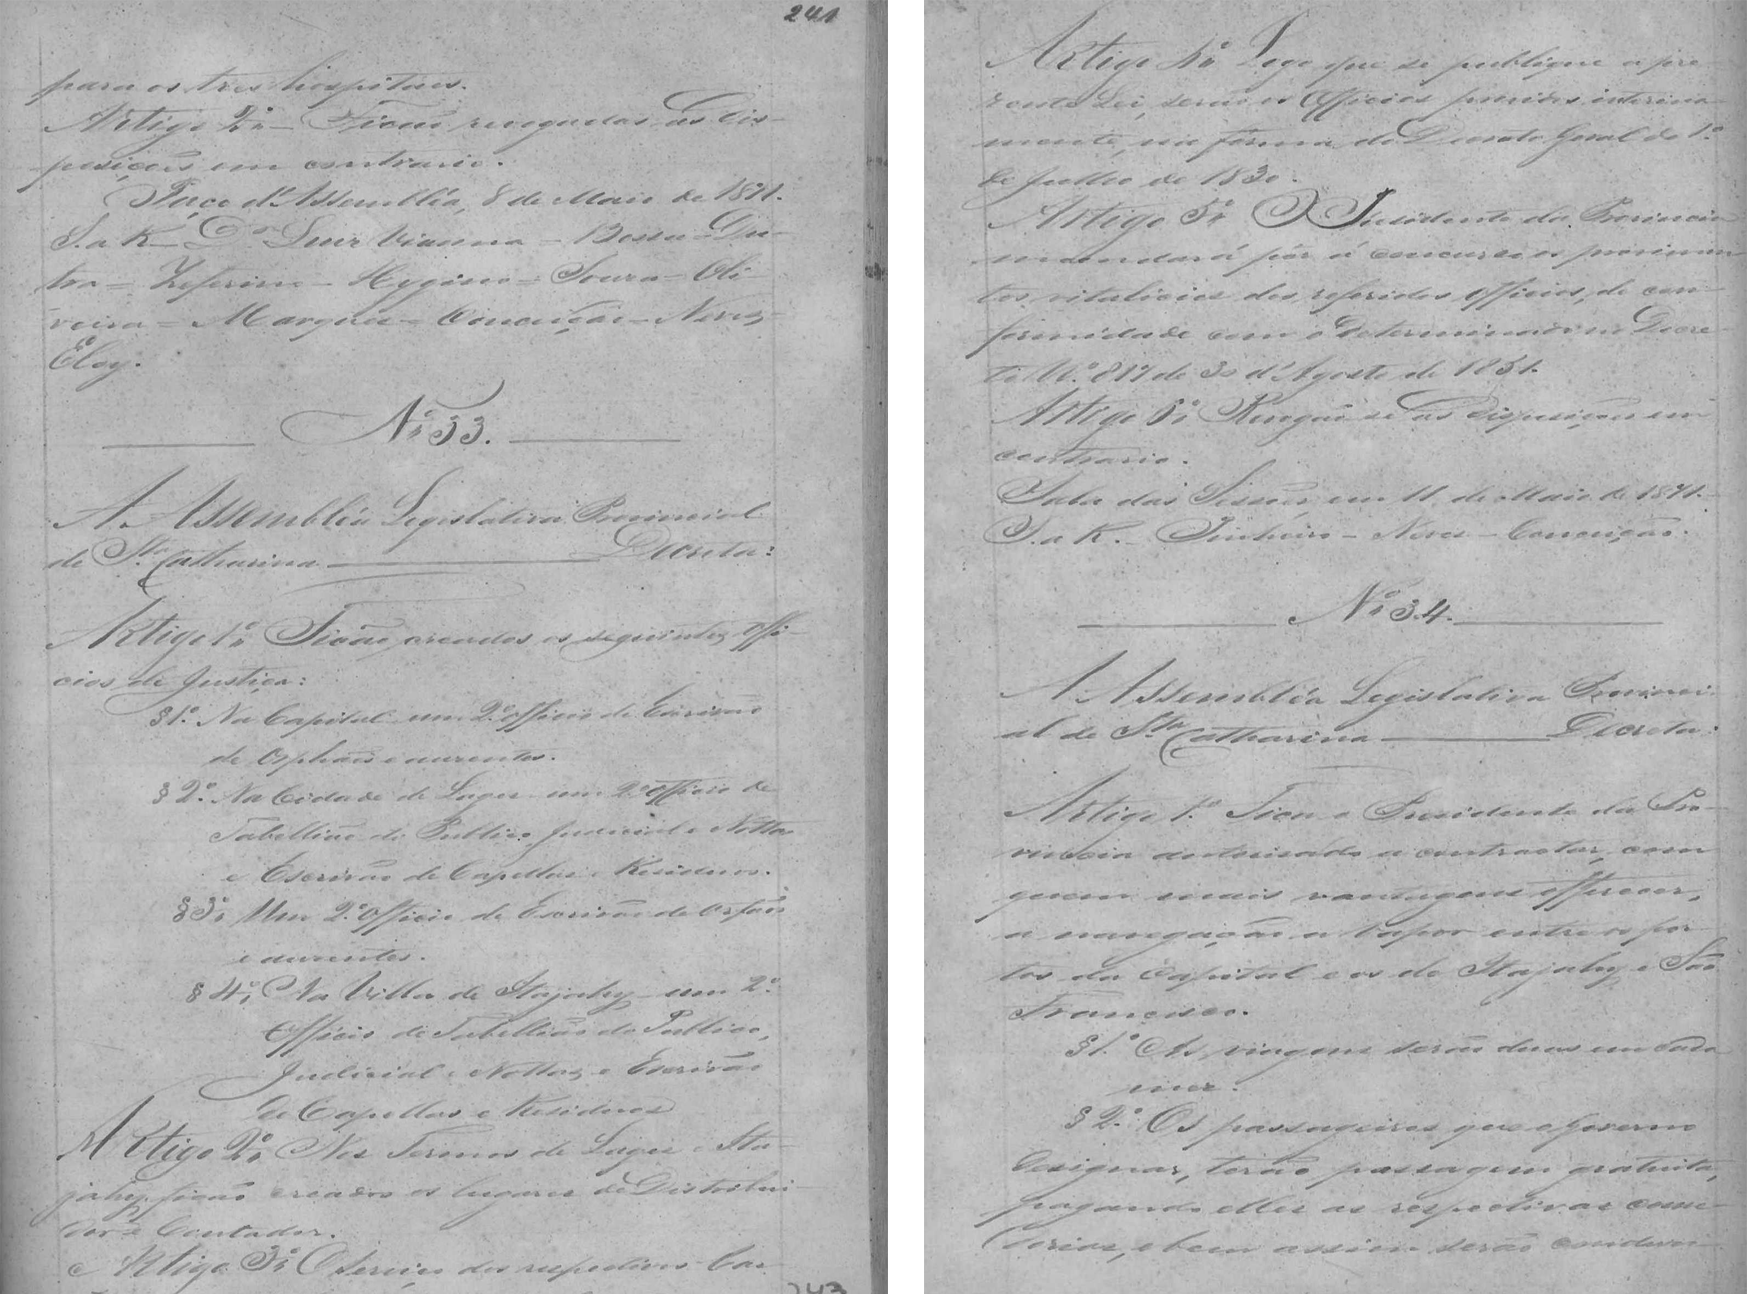 241
para os tres hospitaes.
Artigo 2º Ficão revogadas as dis-
posições em contrario.
Paço d'Assembléa, 8 de Maio de 1871.
S. a R. Dr. Luiz Vianna - Bessa - Du-
tra - Zeferino - Hygino - Souza - Oli-
veira - Marques - Conceição - Neves -
Eloy.
Nº 33.
A Assembléa Legislativa Provincial
de Sta. Catharina Decreta:
Artigo 1º Ficão creados os seguintes offi-
cios de Justiça:
§ 1º Na Capital um 2º officio de Escrivão
de Orphãos e ausentes.
§ 2º Na Cidade de Lages um 2º officio de
Tabellião do Publico, Judicial e Nottas
e Escrivão de Capellas e Residuos.
§ 3º Um 2º officio de Escrivão de Orfãos
e ausentes.
§ 4º Na Villa de Itajahy um 2º
officio de Tabellião do Publico,
Judicial e Nottas, e Escrivão
de Capellas e Residuos
Artigo 2º Nos Termos de Lages e Ita-
jahy ficão creados os lugares de Distribui-
dor e Contador.
Artigo 3º O serviço dos respectivos Car-
243
Artigo 4º Logo que se publique a pre-
zente Lei, serão os Officios providos interina-
mente, na forma do Decreto Geral do 1º
de Julho de 1830.
Artigo 5º O Presidente da Provincia
mandará pôr á concurso os provimen-
tos vitalicios dos referidos officios, de con-
formidade com o determinado no Decre-
to Nº 817 de 30 d'Agosto de 1851.
Artigo 6º Revogão-se as disposições em
contrario.
Sala das Sessões, em 11 de Maio de 1871.
S. a R. - Pinheiro - Neves - Conceição.
Nº 34.
A Assembléa Legislativa Provinci-
al de Sta. Catharina Decreta:
Artigo 1º Fica o Presidente da Pro-
vincia autorisado a contractar, com
quem mais vantagens offerecer,
a navegação a vapor entre os por-
tos da Capital e os de Itajahy e São
Francisco.
§ 1º As viagens serão duas em cada
mez.
§ 2º Os passageiros que o Governo
designar, terão passagem gratuita,
pagando elles as respectivas come-
dorias, e bem assim serão conduzi-